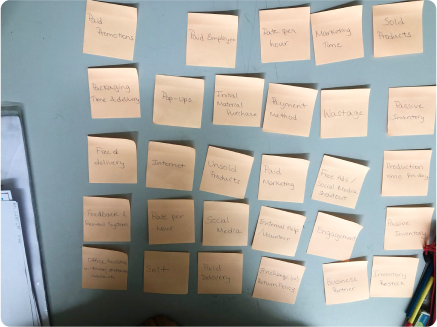 Paid
Promotions
Paid Employee
Rate per
hour
Marketing
Time
Sold
Products
Packaging
Time & delivery
Pop-ups
Initial
Material
Purchase
Payment
Method
Wastage
Passive
Inventory
delivery
Internet
Unsold
Products
Paid
Marketing
Free Ads/
Social Media
Production
time
Feedback &
System
Rate per
hour
Social
Media
External Help
Volunteer
Engagement
Passive
Inventory
Paid
Delivery
Return Policy
Business
Partner
Inventory